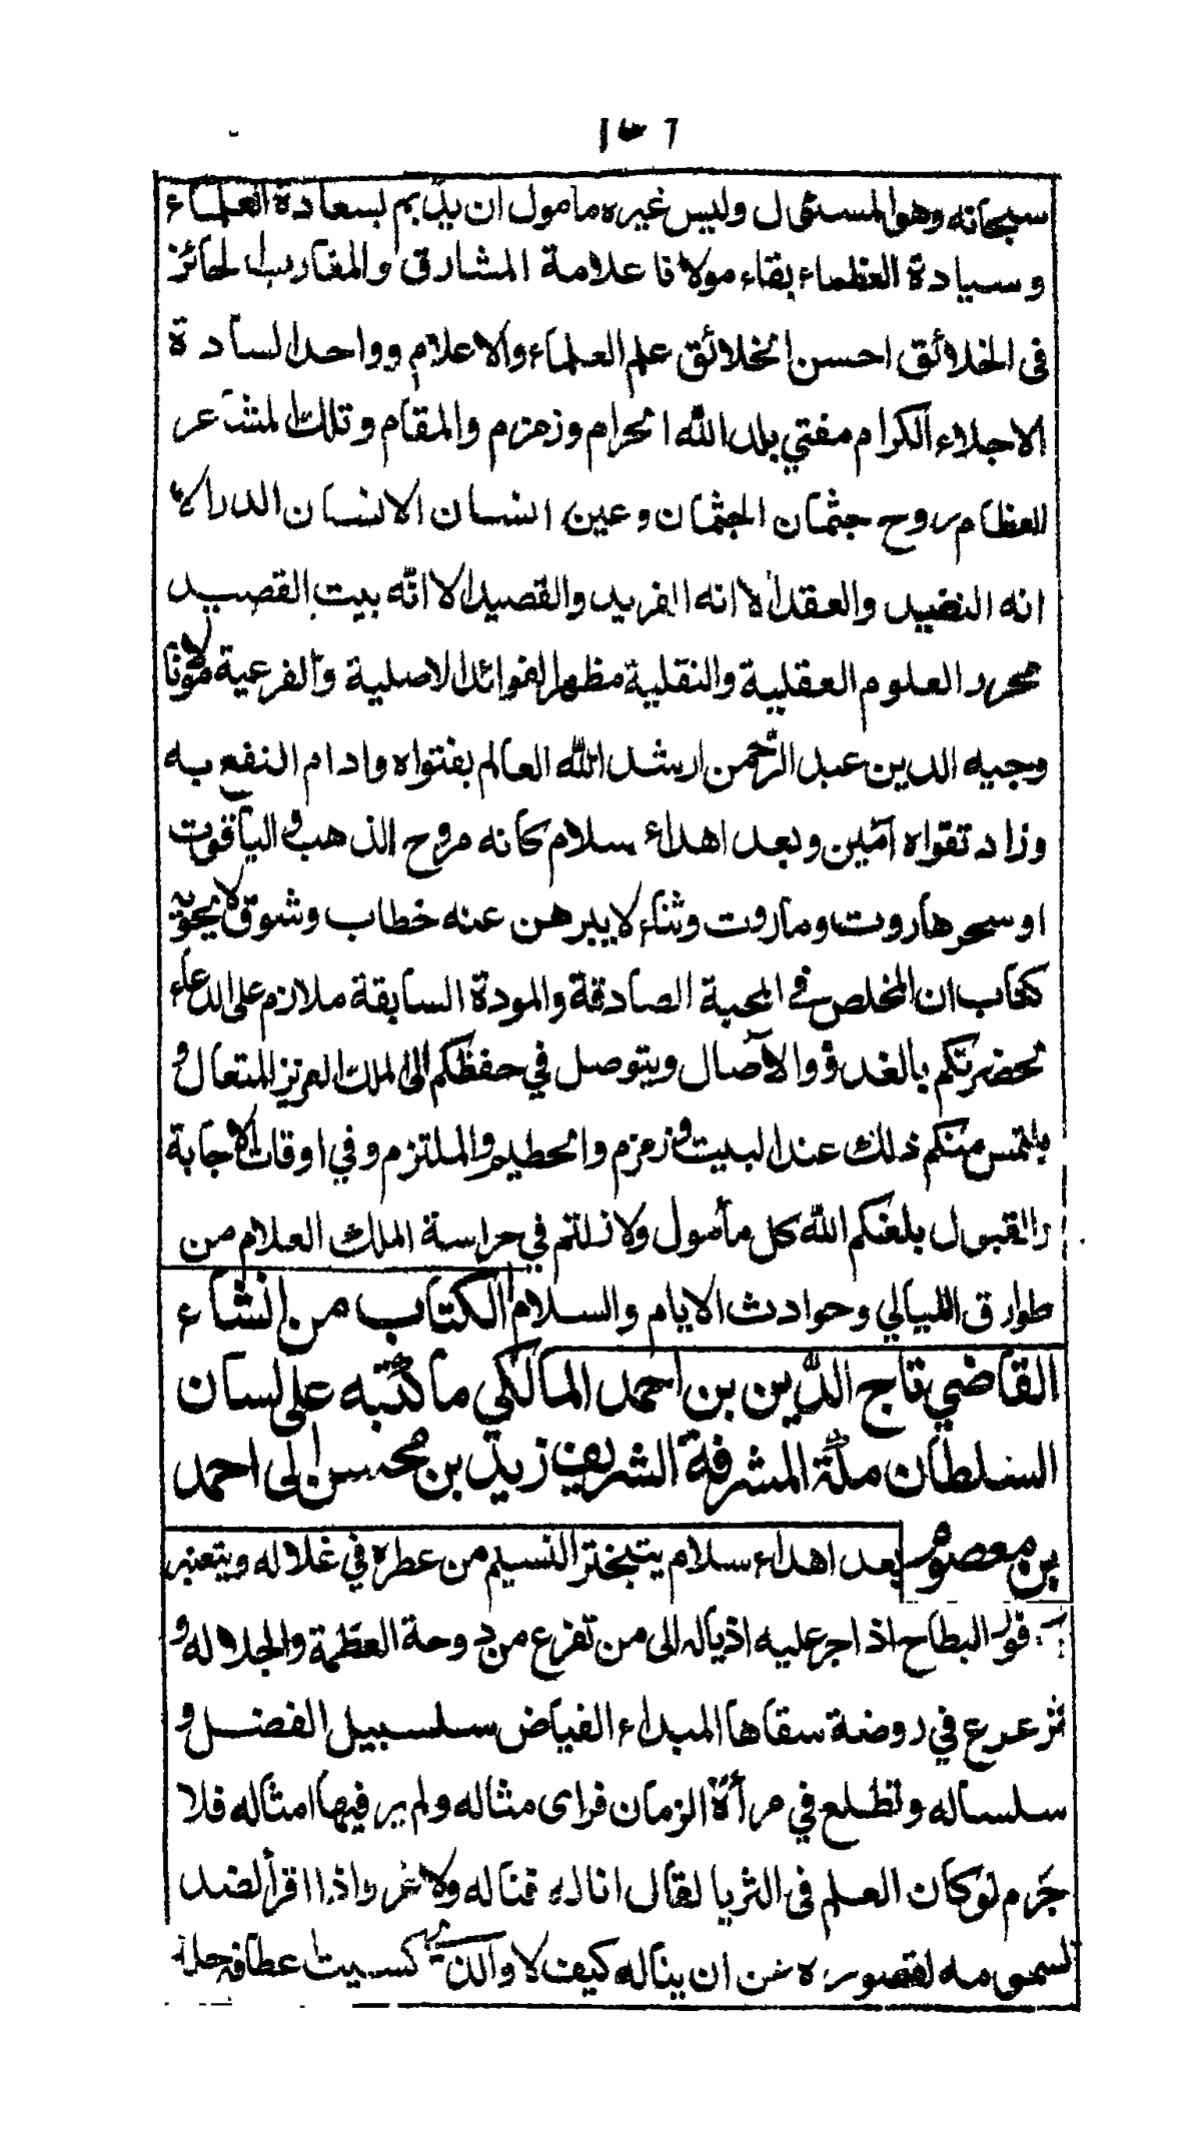 سبحانه وهو المسئول وليس غيره مامول ان يديم بسعادة العلماء
وسيادة العظماء بقاء مولانا علامة المشارق والمغارب الحائز
فى الخلائق احسن الخلائق علم العلماء والاعلام وواحد السادة
الاجلاء الكرام مفتي بلد الله الحرام وزمزم والمقام وتلك المشاعر
العظام روح جثمان الجثمان وعين انسان الانسان الدر الا
انه النضيد والعقد الا انه الفريد والقصيد الا انه بيت القصيد
محرر العلوم العقلية والنقلية مظهر الفوائد الاصلية والفرعية مولانا
وجيه الدين عبد الرحمن ارشد الله العالم بفتواه وادام النفع به
وزاد تقواه آمين وبعد اهداء سلام كانه مروح الذهب والياقوت
او سحر هاروت وماروت وثناء لا يبرهن عنه خطاب وشوق لا يحويه
كتاب ان المخلص في المحبة الصادقة والمودة السابقة ملازم على الدعاء
لحضرتكم بالغدو والآصال ويتوصل في حفظكم الى الملك العزيز المتعال و
يلتمس منكم ذلك عند البيت وزمزم والحطيم والملتزم وفي اوقات الاجابة
والقبول بلغكم الله كل مأمول ولا زلتم في حراسة الملك العلام من
طوارق الليالي وحوادث الايام والسلام الكتاب من انشاء
القاضي تاج الدين بن احمد المالكي ما كتبه على لسان
السلطان مكة المشرفة الشريف زيد بن محسن الى احمد
بن معصوم بعد اهداء سلام يتبختر النسيم من عطره في غلاله ويتعنبر
البطاح اذا جر عليه اذياله الى من تفرع من دوحة العظمة والجلاله و
ترعرع في روضة سقاها المبداء الفياض سلسبيل الفضل و
سلساله وتطلع في مرأة الزمان فراى مثاله ولم ير فيها امثاله فلا
جرم لو كان العلم فى الثريا لقال اناله فناله ولا غرو اذا اقر الضد
لسمو مه لقصوره عن ان يناله كيف لا والذي كسيت عطافه حلة